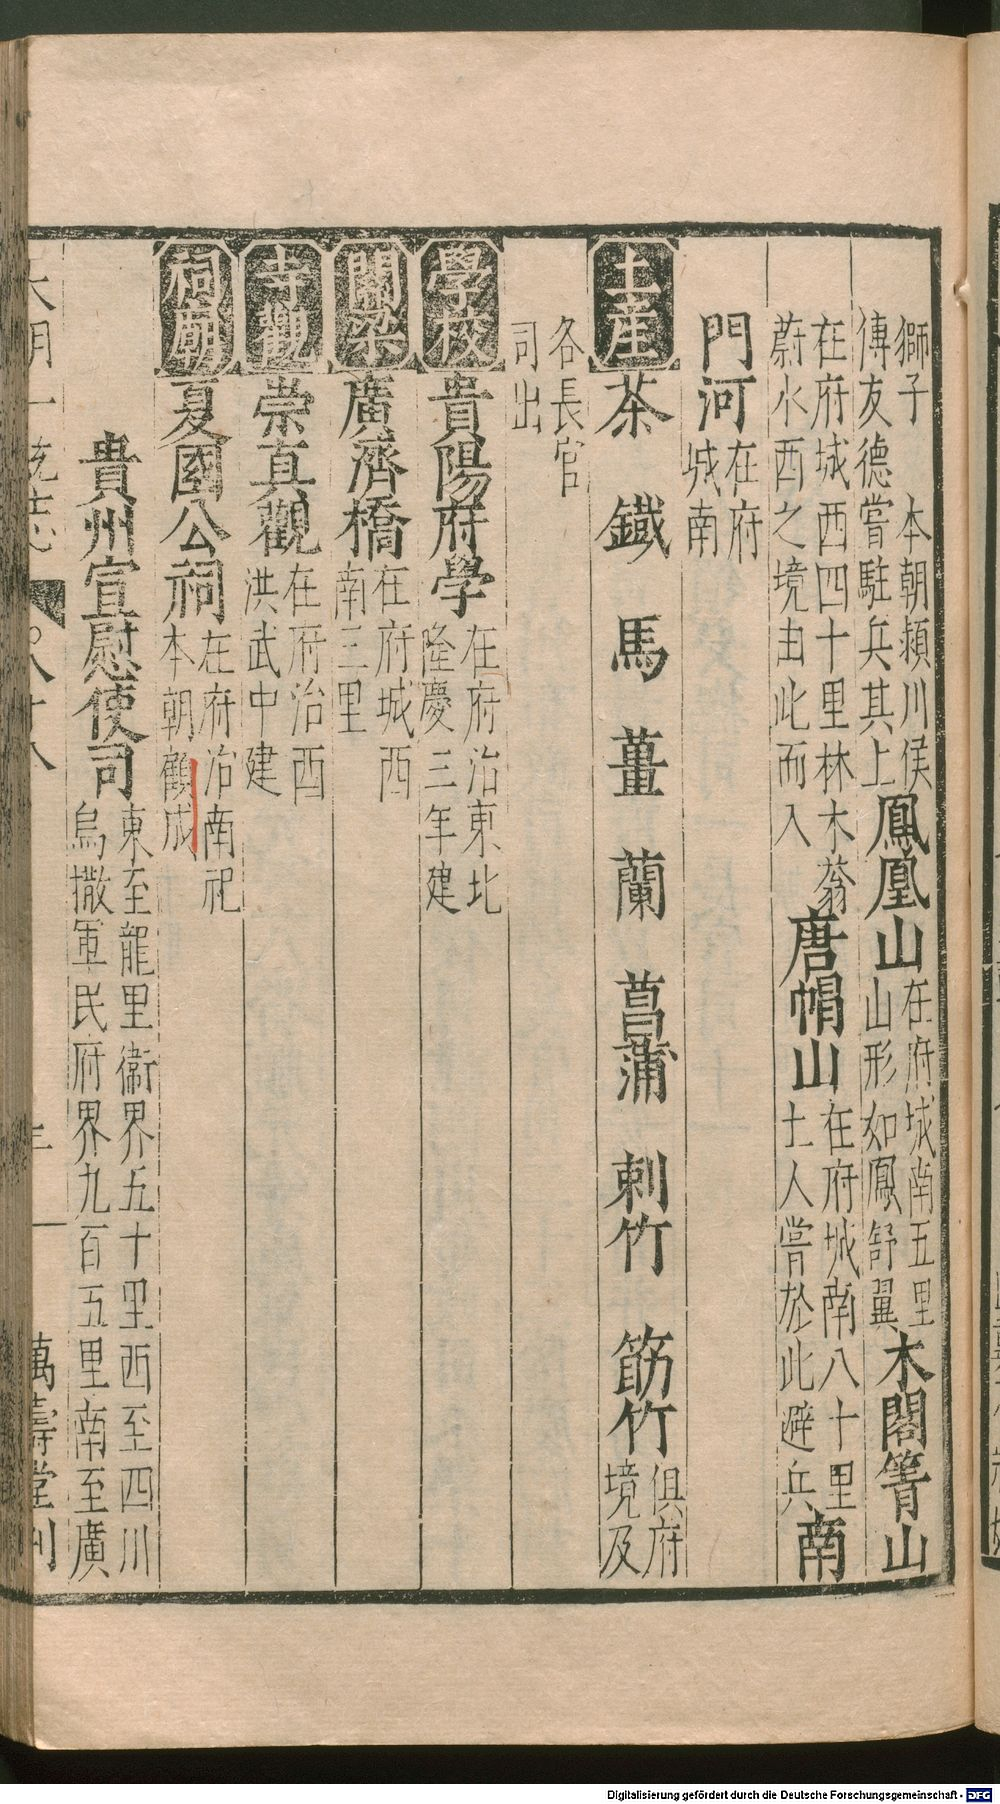 獅子　本朝潁川侯
傅友德嘗駐兵其上鳳凰山在府城南五里
山形如鳳舒翼木閣箐山
在府城西四十里林木蓊
蔚水西之境由此而入唐帽山在府城南八十里
土人嘗於此避兵南
門河在府
城南
土産茶　鐵　馬　薑　蘭　菖蒲　刺竹　筯竹俱府
境及
各長官
司出
學校貴陽府學在府治東北
隆慶三年建
關梁廣濟橋在府城西
南三里
寺觀崇真觀在府治西
洪武中建
祠廟夏國公祠在府治南祀
本朝顧成
貴州宣慰使司東至龍里衞界五十里西至四川
烏撒軍民府界九百五里南至廣
大明一統志　八十八　三　萬壽堂刊
Digitalisierung gefördert durch die Deutsche Forschungsgemeinschaft - DFG